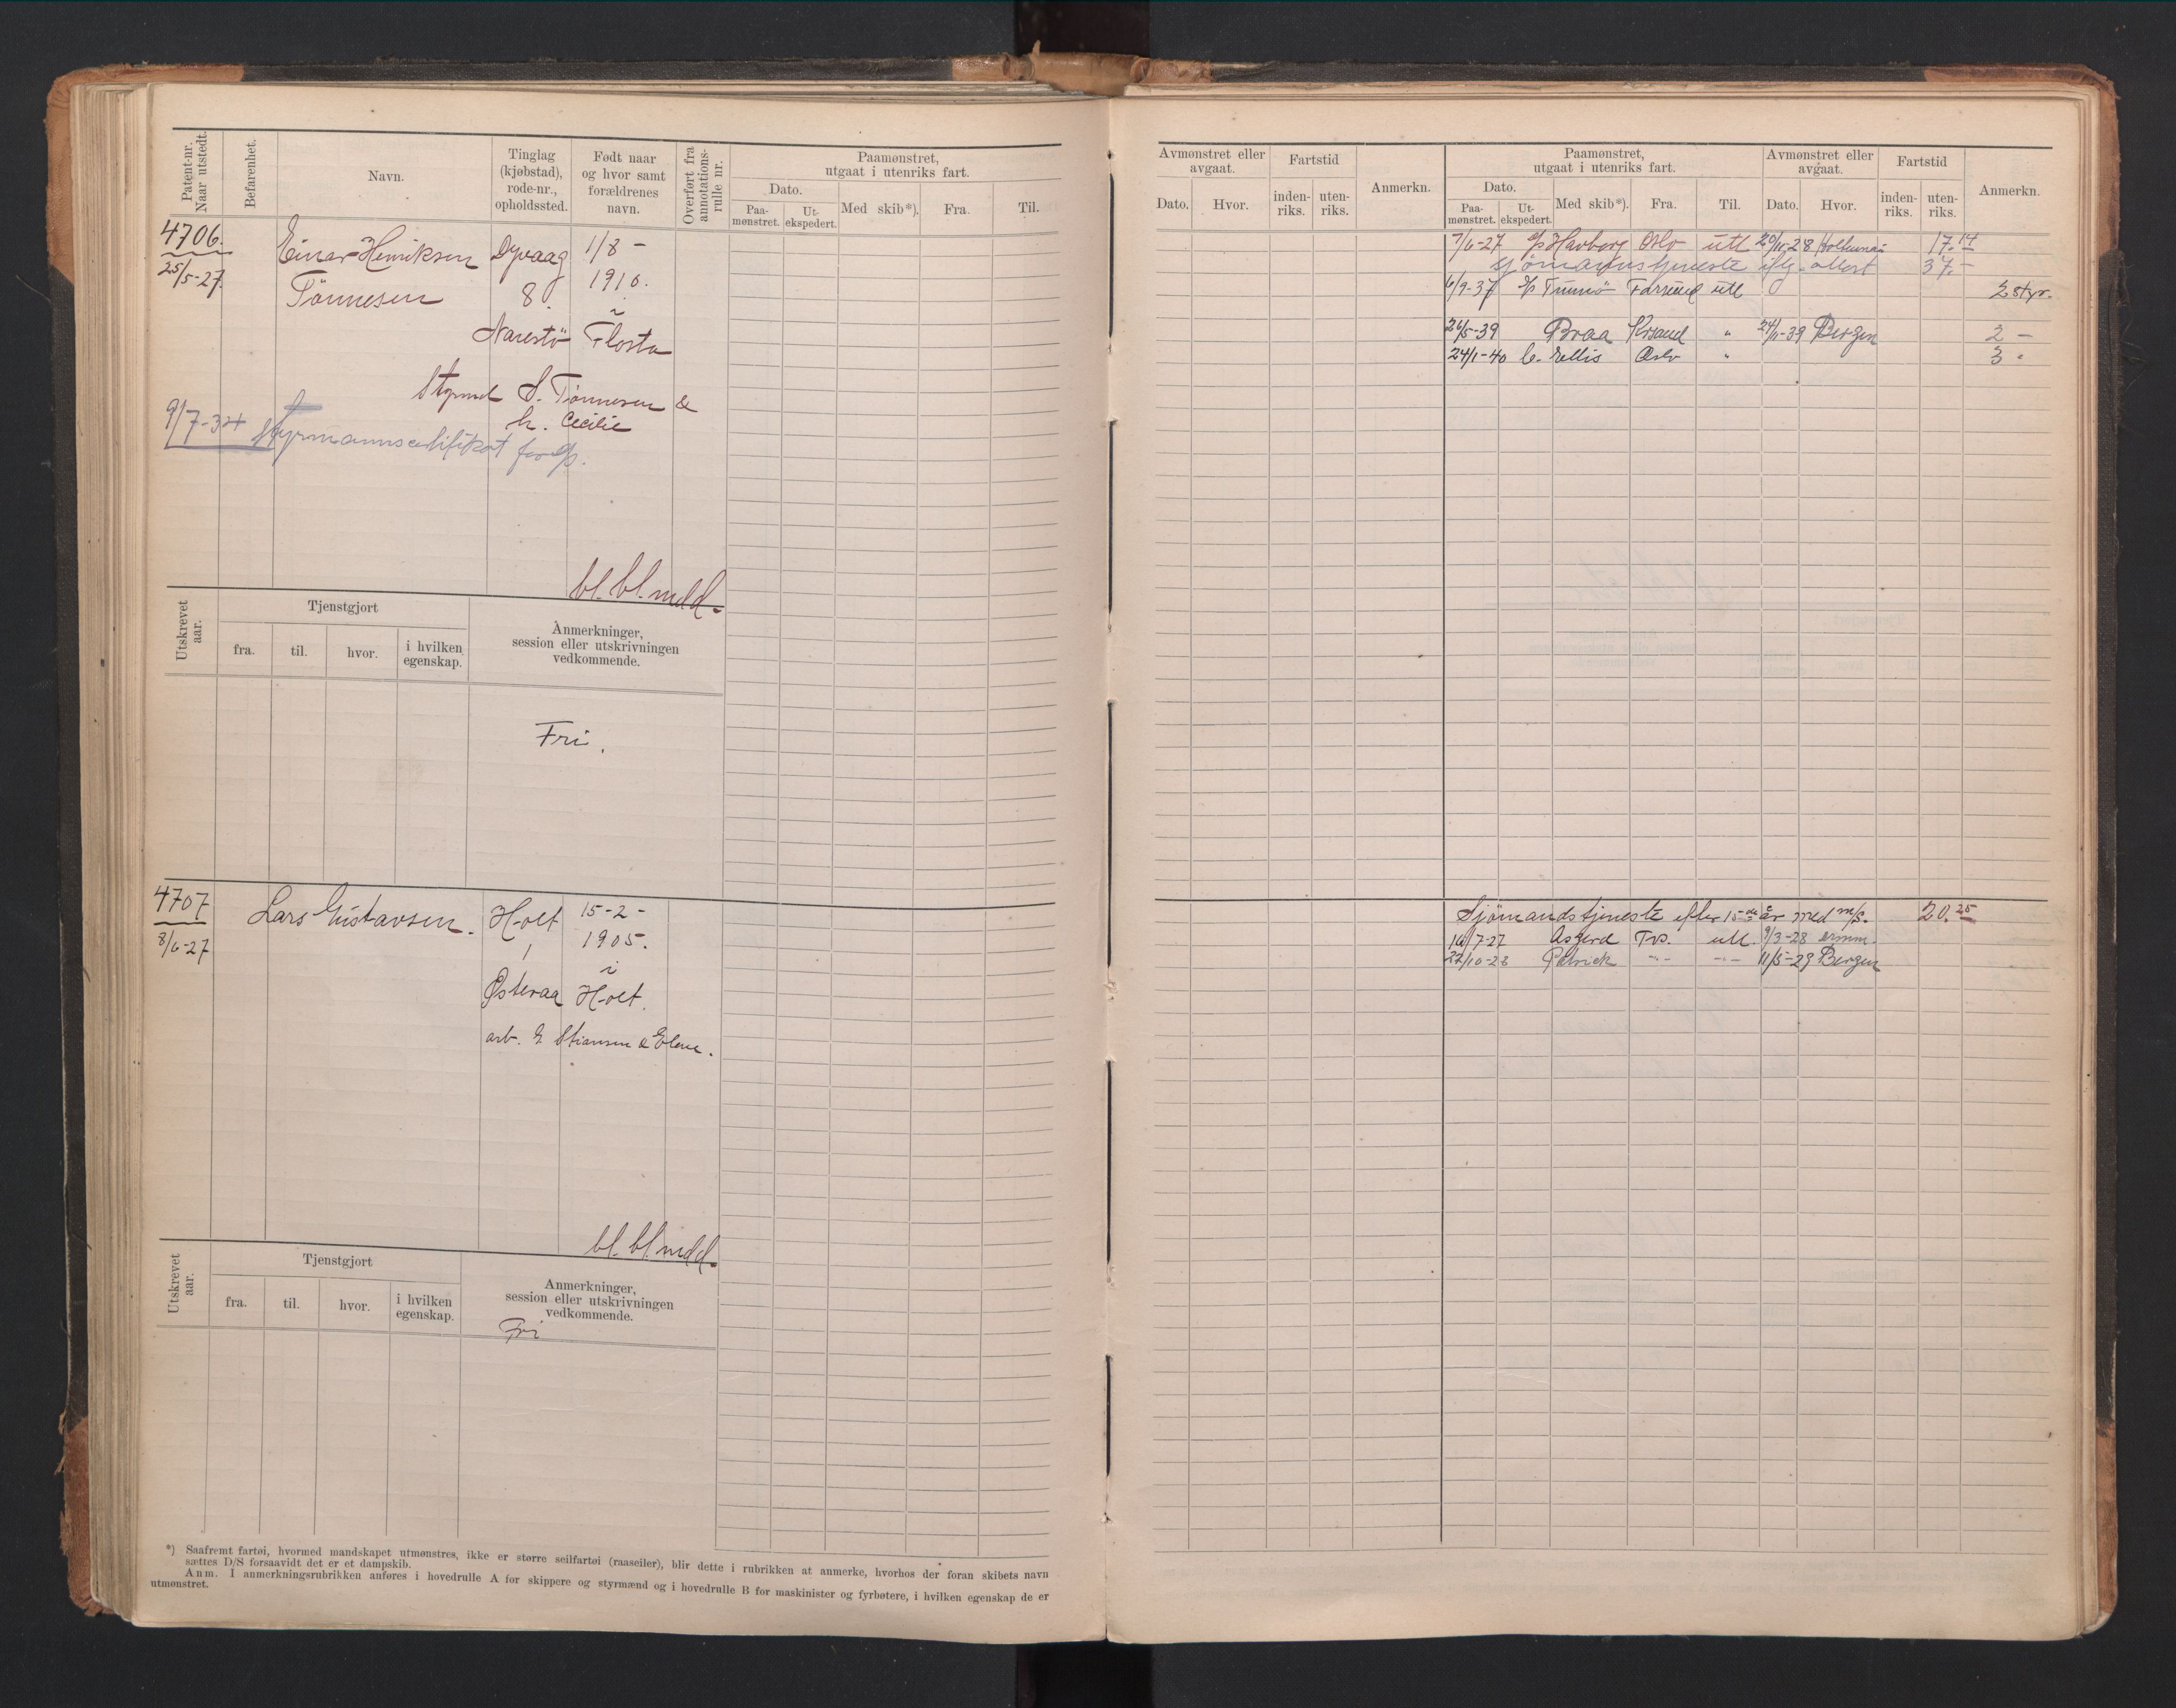 Patent-nr. Naar utstedt.
Befarenhet.
Navn.
Tinglag (kjøbstad), rode-nr., opholdssted.
Født naar og hvor samt forældrenes navn.
Overført fra annotations-rulle nr.
Paamønstret, utgaat i utenriks fart.
Dato.
Paa-mønstret.
Ut-ekspedert.
Med skib*).
Fra.
Til.
4706.
25/5-27
Einar Henriksen
Tönnesen
Dyvaag
8.
Narestö
1/8 -
1910.
i
Flosta
Styrmd S. Tönnesen &
h. Cecilie
9/7-34 styrmannscertifikat for d/s.
bl. bl. meld.
Utskrevet aar.
Tjenstgjort
fra.
til.
hvor.
i hvilken egenskap.
Anmerkninger, session eller utskrivningen vedkommende.
Fri.
4707
8/6-27
Lars Gustavsen.
Holt
1
Østeraa
15-2-
1905.
i
Holt.
arb. G. Stiansen & Elene.
bl. bl. meld.
Utskrevet aar.
Tjenstgjort
fra.
til.
hvor.
i hvilken egenskap.
Anmerkninger, session eller utskrivningen vedkommende.
Fri
*) Saafremt fartøi, hvormed mandskapet utmønstres, ikke er større seilfartøi (raaseiler), blir dette i rubrikken at anmerke, hvorhos der foran skibets navn
sættes D/S forsaavidt det er et dampskib.
Anm. I anmerkningsrubrikken anføres i hovedrulle A for skippere og styrmænd og i hovedrulle B for maskinister og fyrbøtere, i hvilken egenskap de er
utmønstret.
Avmønstret eller avgaat.
Dato.
Hvor.
Fartstid
inden-riks.
uten-riks.
Anmerkn.
Paamønstret, utgaat i utenriks fart.
Dato.
Paa-mønstret.
Ut-ekspedert.
Med skib*).
Fra.
Til.
Avmønstret eller avgaat.
Dato.
Hvor.
Fartstid
inden-riks.
uten-riks.
Anmerkn.
7/6-27 d/s Havborg Oslo utl 17.14
sjömannstjeneste iflg. attest 37.-
6/9-37 d/s Farsund utl 2 styr.
26/5-39 Braa Krsand " 24/11-39 Bergen 2 -
24/1-40 Oslo " 3 "
Sjömandstjeneste efter 15 de år med m/s. 20.25
16/7-27 Asgerd Tvs. utl. 9/3-28
22/10-28 Patrick -"- -"- 11/5-29 Bergen